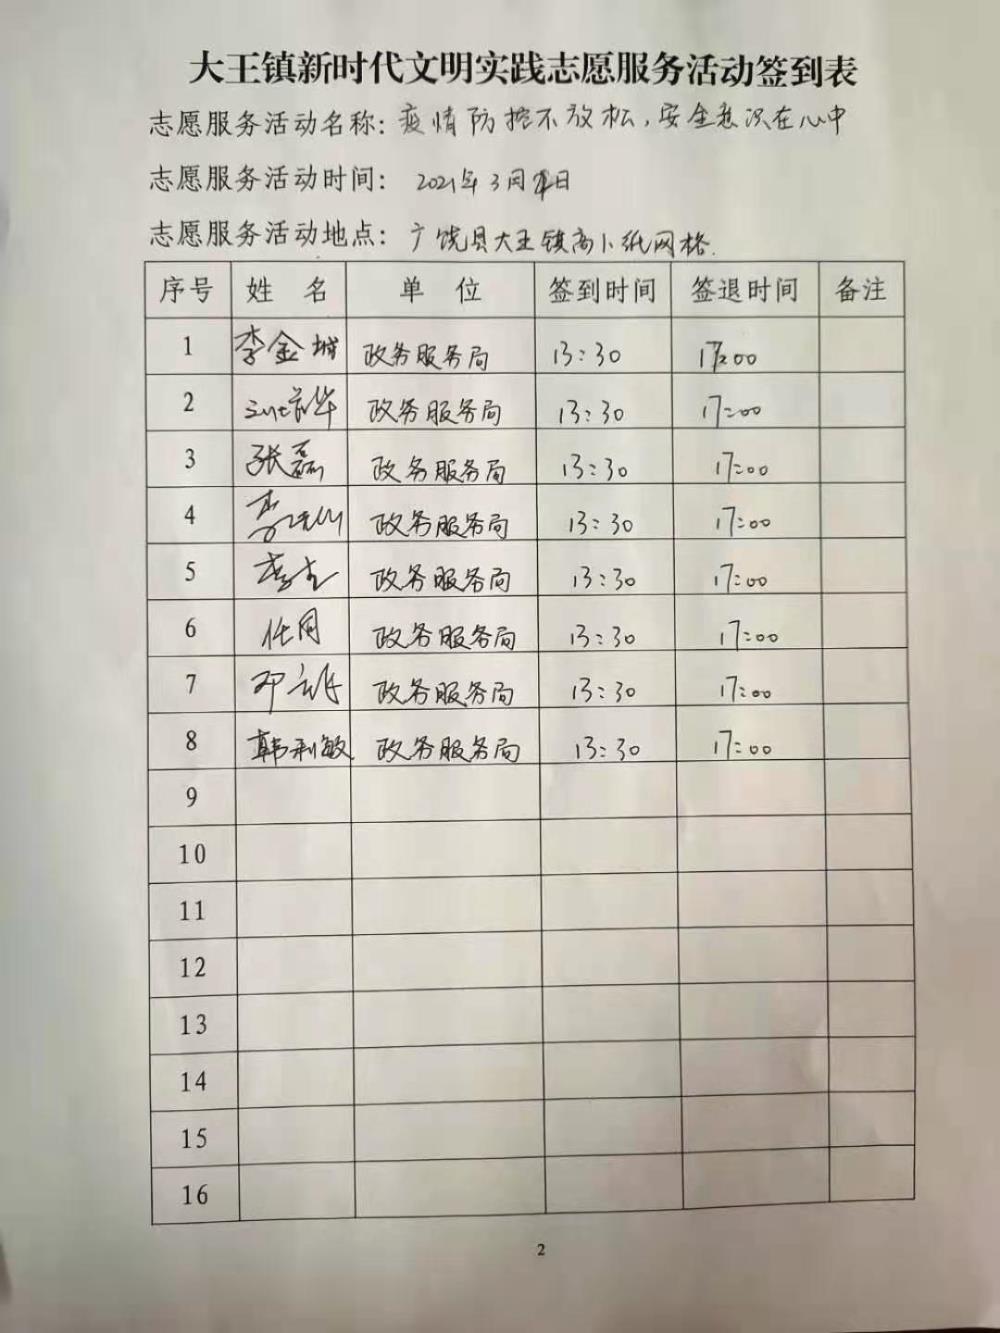 大王镇新时代文明实践志愿服务活动签到表
志愿服务活动名称: 疫情防控不放松,安全意识在心中
志愿服务活动时间: 2021年3月日
志愿服务活动地点: 广饶县大王镇高卜纸网格.
序号 姓 名 单 位 签到时间 签退时间 备注
1 李金城 政务服务局 13:30 17:00
2 政务服务局 13:30 17:00
3 张磊 政务服务局 13:30 17:00
4 政务服务局 13:30 17:00
5 政务服务局 13:30 17:00
6 任同 政务服务局 13:30 17:00
7 政务服务局 13:30 17:00
8 韩利敏 政务服务局 13:30 17:00
9
10
11
12
13
14
15
16
2